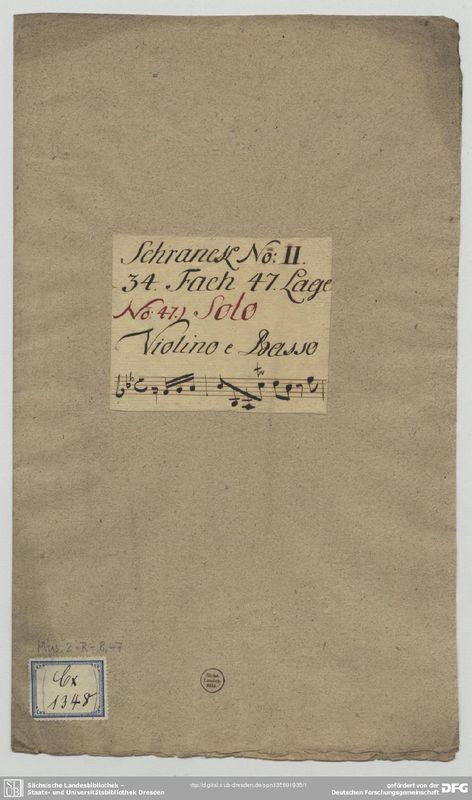 Schranck No: II.
34. Fach 47. Lage
No: 47.) Solo
Violino e Basso
tr
Mus. 2-R-8,47
Cx
1348
Sächs.
Landes-
Bibl.
SLUB
Sächsische Landesbibliothek –
Staats- und Universitätsbibliothek Dresden
http://digital.slub-dresden.de/
gefördert von der
Deutschen Forschungsgemeinschaft
DFG